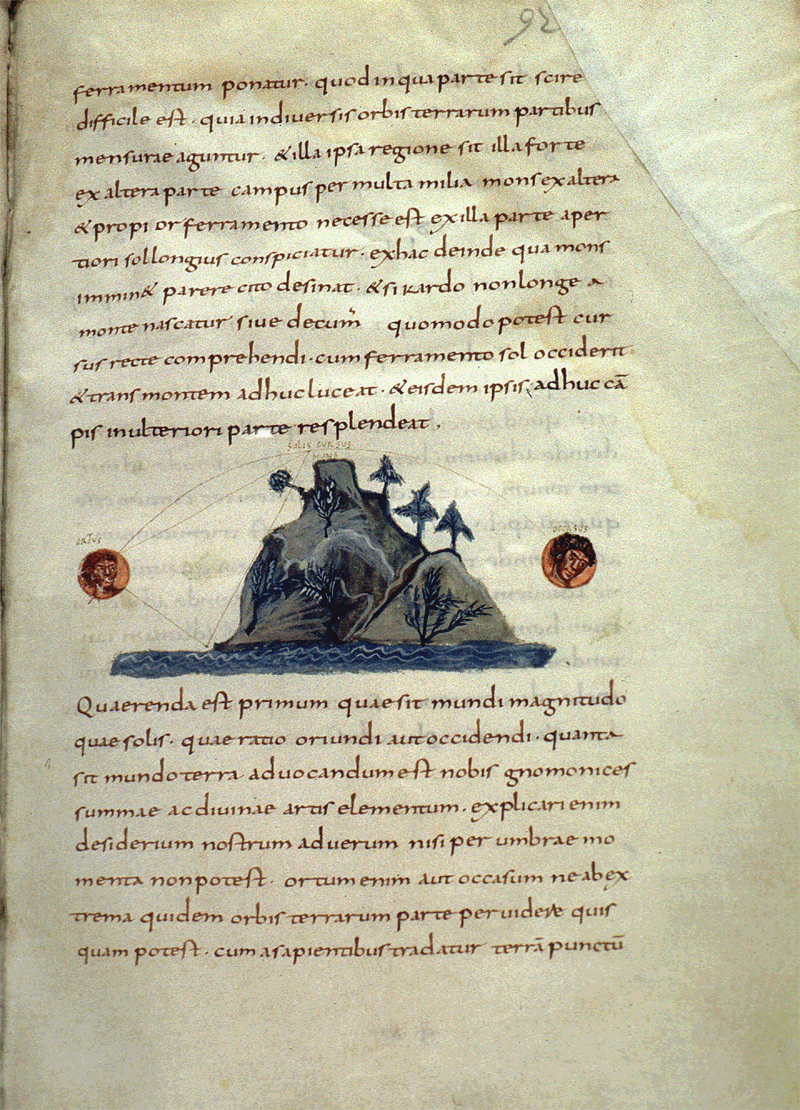 92
ferramentum ponatur· quod in qua parte sit scire
difficile est· quia in diversis orbis terrarum partibus
mensurae aguntur· & illa ipsa regione sit illa forte
ex altera parte campus per multa milia mons ex altera
& propior ferramento necesse est ex illa parte aper
tiori sol longius conspiciatur· ex hac deinde qua mons
immin& parere cito desinat· & si kardo non longe a
monte nascatur sive decum̄ quomodo potest cur
sus recte comprehendi· cum ferramento sol occiderit
& trans montem adhuc luceat· & eisdem ipsis adhuc cā
pis in ulteriori parte resplendeat·
SOLIS CURSUS
ORTUS
Quaerenda est primum quae sit mundi magnitudo
quae solis· quae ratio oriundi aut occidendi· quanta
sit mundo terra· advocandum est nobis gnomonices
summae ac divinae artis elementum· explicari enim
desiderium nostrum ad verum nisi per umbrae mo
menta non potest· ortum enim aut occasum ne ab ex
trema quidem orbis terrarum parte pervidere quis
quam potest· cum a sapientibus tradatur terrā punctū